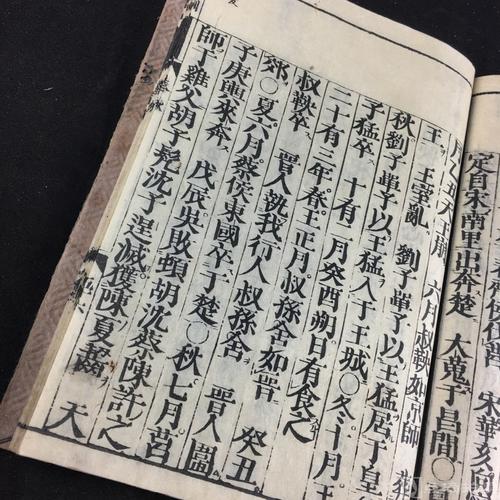 宋華亥向
定自宋南里出奔楚 大蒐于昌間〇
月乙丑天王崩 六月叔鞅如京師 葬
王 王室亂 劉子單子以王猛居于皇
秋劉子單子以王猛入于王城〇冬十月王
子猛卒 十有二月癸酉朔日有食之
二十有三年春王正月叔孫舍如晉 癸丑
叔鞅卒 晉人執我行人叔孫舍 晉人圍
郊〇夏六月蔡侯東國卒于楚〇秋七月莒
子庚輿來奔 戊辰吳敗頓胡沈蔡陳許之
師于雞父胡子髠沈子逞滅獲陳夏齧 天